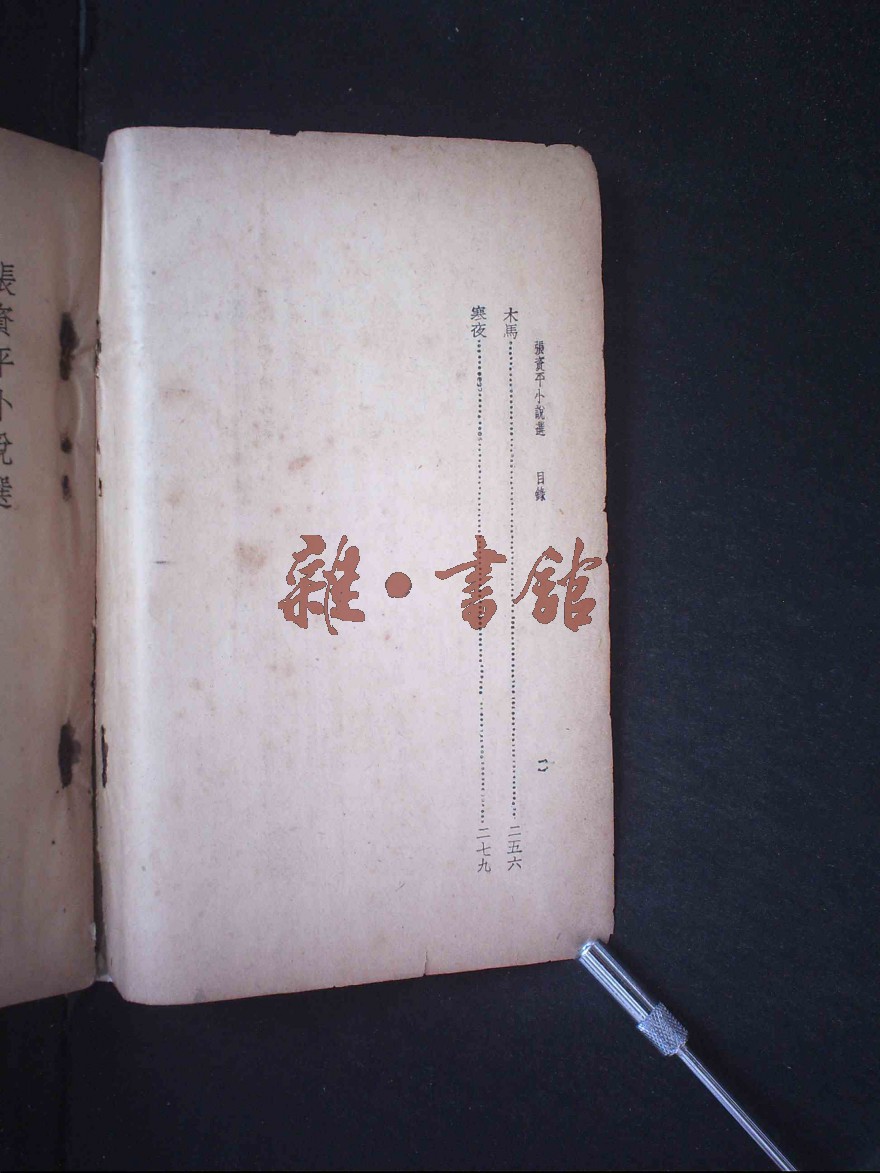 張資平小說選　目錄　二
木馬…………二五六
寒夜…………二七九
張資平小說選
雜·書館